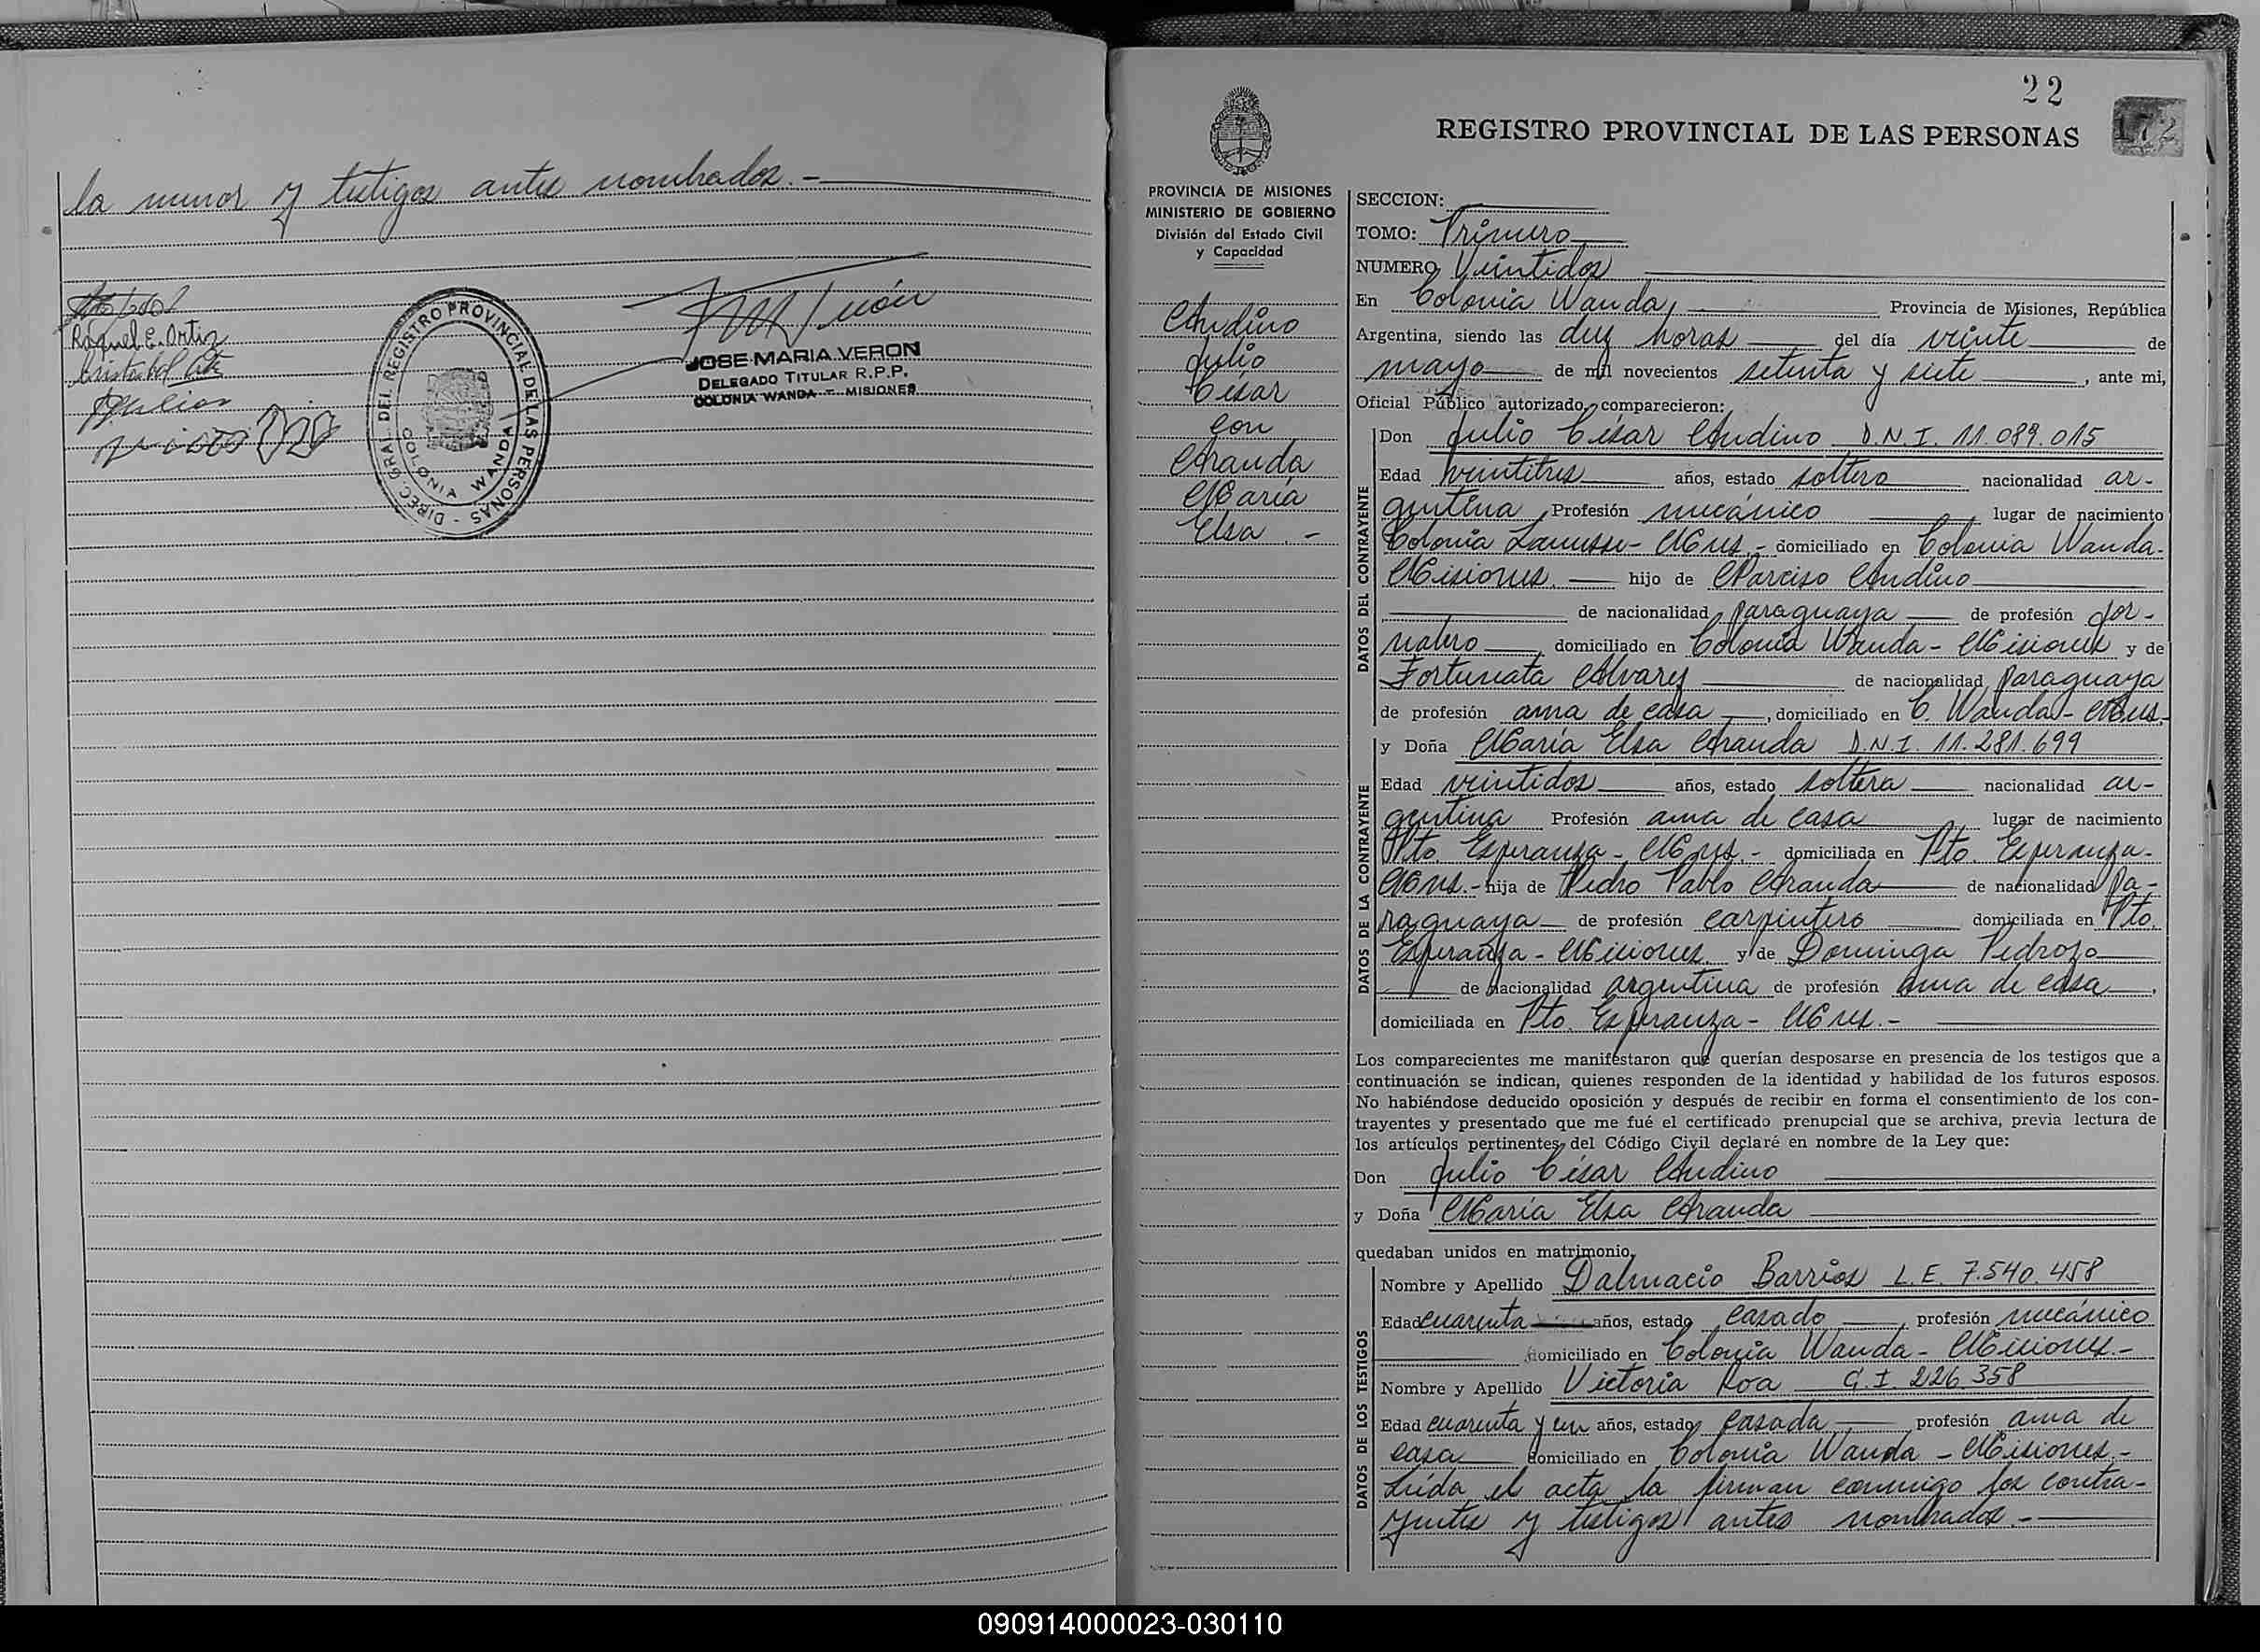 la menor y testigos antes nombrados.-
Raquel E. Ortiz
Cristobal
DIREC. GRAL. DEL REGISTRO PROVINCIAL DE LAS PERSONAS -
COLONIA WANDA
JOSE MARIA VERON
DELEGADO TITULAR R.P.P.
COLONIA WANDA - MISIONES
22
172
REGISTRO PROVINCIAL DE LAS PERSONAS
PROVINCIA DE MISIONES
MINISTERIO DE GOBIERNO
División del Estado Civil
y Capacidad
Andino
Julio
César
con
Aranda
María
Elsa.-
SECCION:
TOMO: Primero
NUMERO Veintidos
En Colonia Wanda, Provincia de Misiones, República
Argentina, siendo las diez horas del día veinte de
mayo de mil novecientos setenta y siete, ante mi,
Oficial Público autorizado, comparecieron:
DATOS DEL CONTRAYENTE
Don Julio César Andino D.N.I. 11.089.015
Edad veintitres años, estado soltero nacionalidad ar-
gentina Profesión mecánico lugar de nacimiento
Colonia Lanusse- Mnes.- domiciliado en Colonia Wanda-
Misiones. hijo de Narciso Andino
de nacionalidad paraguaya de profesión jor-
nalero domiciliado en Colonia Wanda- Misiones y de
Fortunata Alvarez de nacionalidad paraguaya
de profesión ama de casa, domiciliado en C. Wanda- Mnes-
DATOS DE LA CONTRAYENTE
y Doña María Elsa Aranda D.N.I. 11.281.699
Edad veintidos años, estado soltera nacionalidad ar-
gentina Profesión ama de casa lugar de nacimiento
Pto. Esperanza- Mnes.- domiciliada en Pto. Esperanza-
Mnes.- hija de Pedro Pablo Aranda de nacionalidad pa-
raguaya de profesión carpintero domiciliada en Pto.
Esperanza- Misiones y de Dominga Pedrozo
de nacionalidad argentina de profesión ama de casa,
domiciliada en Pto. Esperanza- Mnes.-
Los comparecientes me manifestaron que querían desposarse en presencia de los testigos que a
continuación se indican, quienes responden de la identidad y habilidad de los futuros esposos.
No habiéndose deducido oposición y después de recibir en forma el consentimiento de los con-
trayentes y presentado que me fué el certificado prenupcial que se archiva, previa lectura de
los artículos pertinentes del Código Civil declaré en nombre de la Ley que:
Don Julio César Andino
y Doña María Elsa Aranda
quedaban unidos en matrimonio,
DATOS DE LOS TESTIGOS
Nombre y Apellido Dalmacio Barrios L.E. 7.540.458
Edad cuarenta años, estado casado, profesión mecánico
domiciliado en Colonia Wanda- Misiones.-
Nombre y Apellido Victoria Roa C.I. 226.358
Edad cuarenta y un años, estado casada profesión ama de
casa domiciliado en Colonia Wanda- Misiones.-
Leída el acta la firman conmigo los contra-
yentes y testigos antes nombrados.-
090914000023-030110